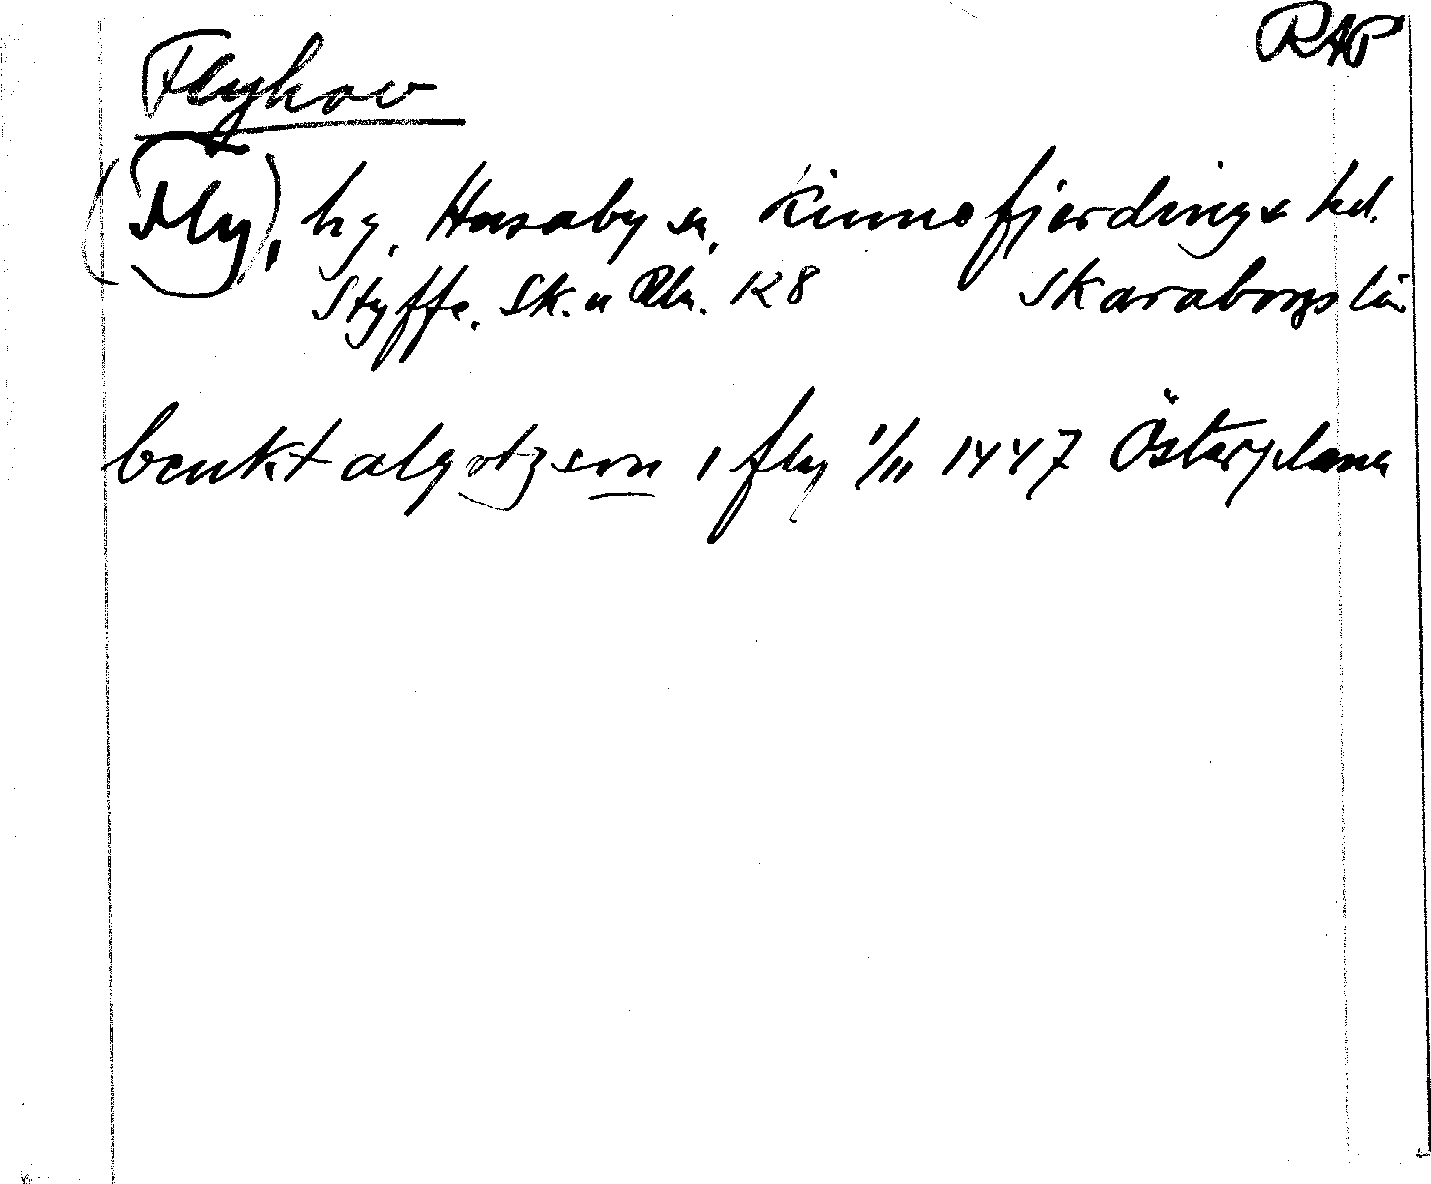 RAP
Flyhov
(Fly), hg. Husaby sn, Kinnefjerdings hd.
Styffe, Sk. u Un. 128 Skaraborgs län
benkt algotzson i fly 1/11 1447 Österplana